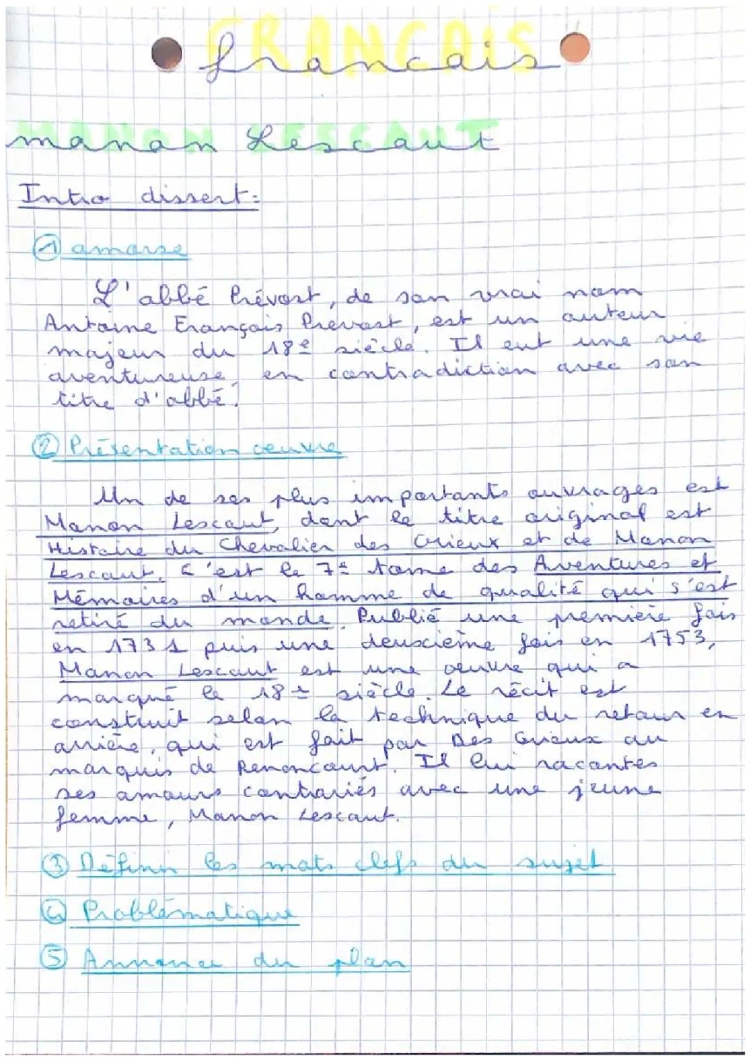 FRANCAIS
francais
MANON LESCAUT
manon Lescaut
Intro dissert:
① amorse
L'abbé Prévost, de son vrai nom
Antoine François Prévost, est un auteur
majeur du 18e siècle. Il eut une vie
aventureuse, en contradiction avec son
titre d'abbé.
② Présentation oeuvre
Un de ses plus importants ouvrages est
Manon Lescaut, dont le titre original est
Histoire du Chevalier des Grieux et de Manon
Lescaut. C'est le 7e tome des Aventures et
Mémoires d'un homme de qualité qui s'est
retiré du monde. Publié une première fois
en 1731 puis une deuxième fois en 1753,
Manon Lescaut est une oeuvre qui a
marqué le 18e siècle. Le récit est
construit selon la technique du retour en
arrière, qui est fait par Des Grieux au
marquis de Renoncourt. Il lui racontes
ses amours contrariés avec une jeune
femme, Manon Lescaut.
③ Définir les mots clefs du sujet
④ Problématique
⑤ Annonce du plan